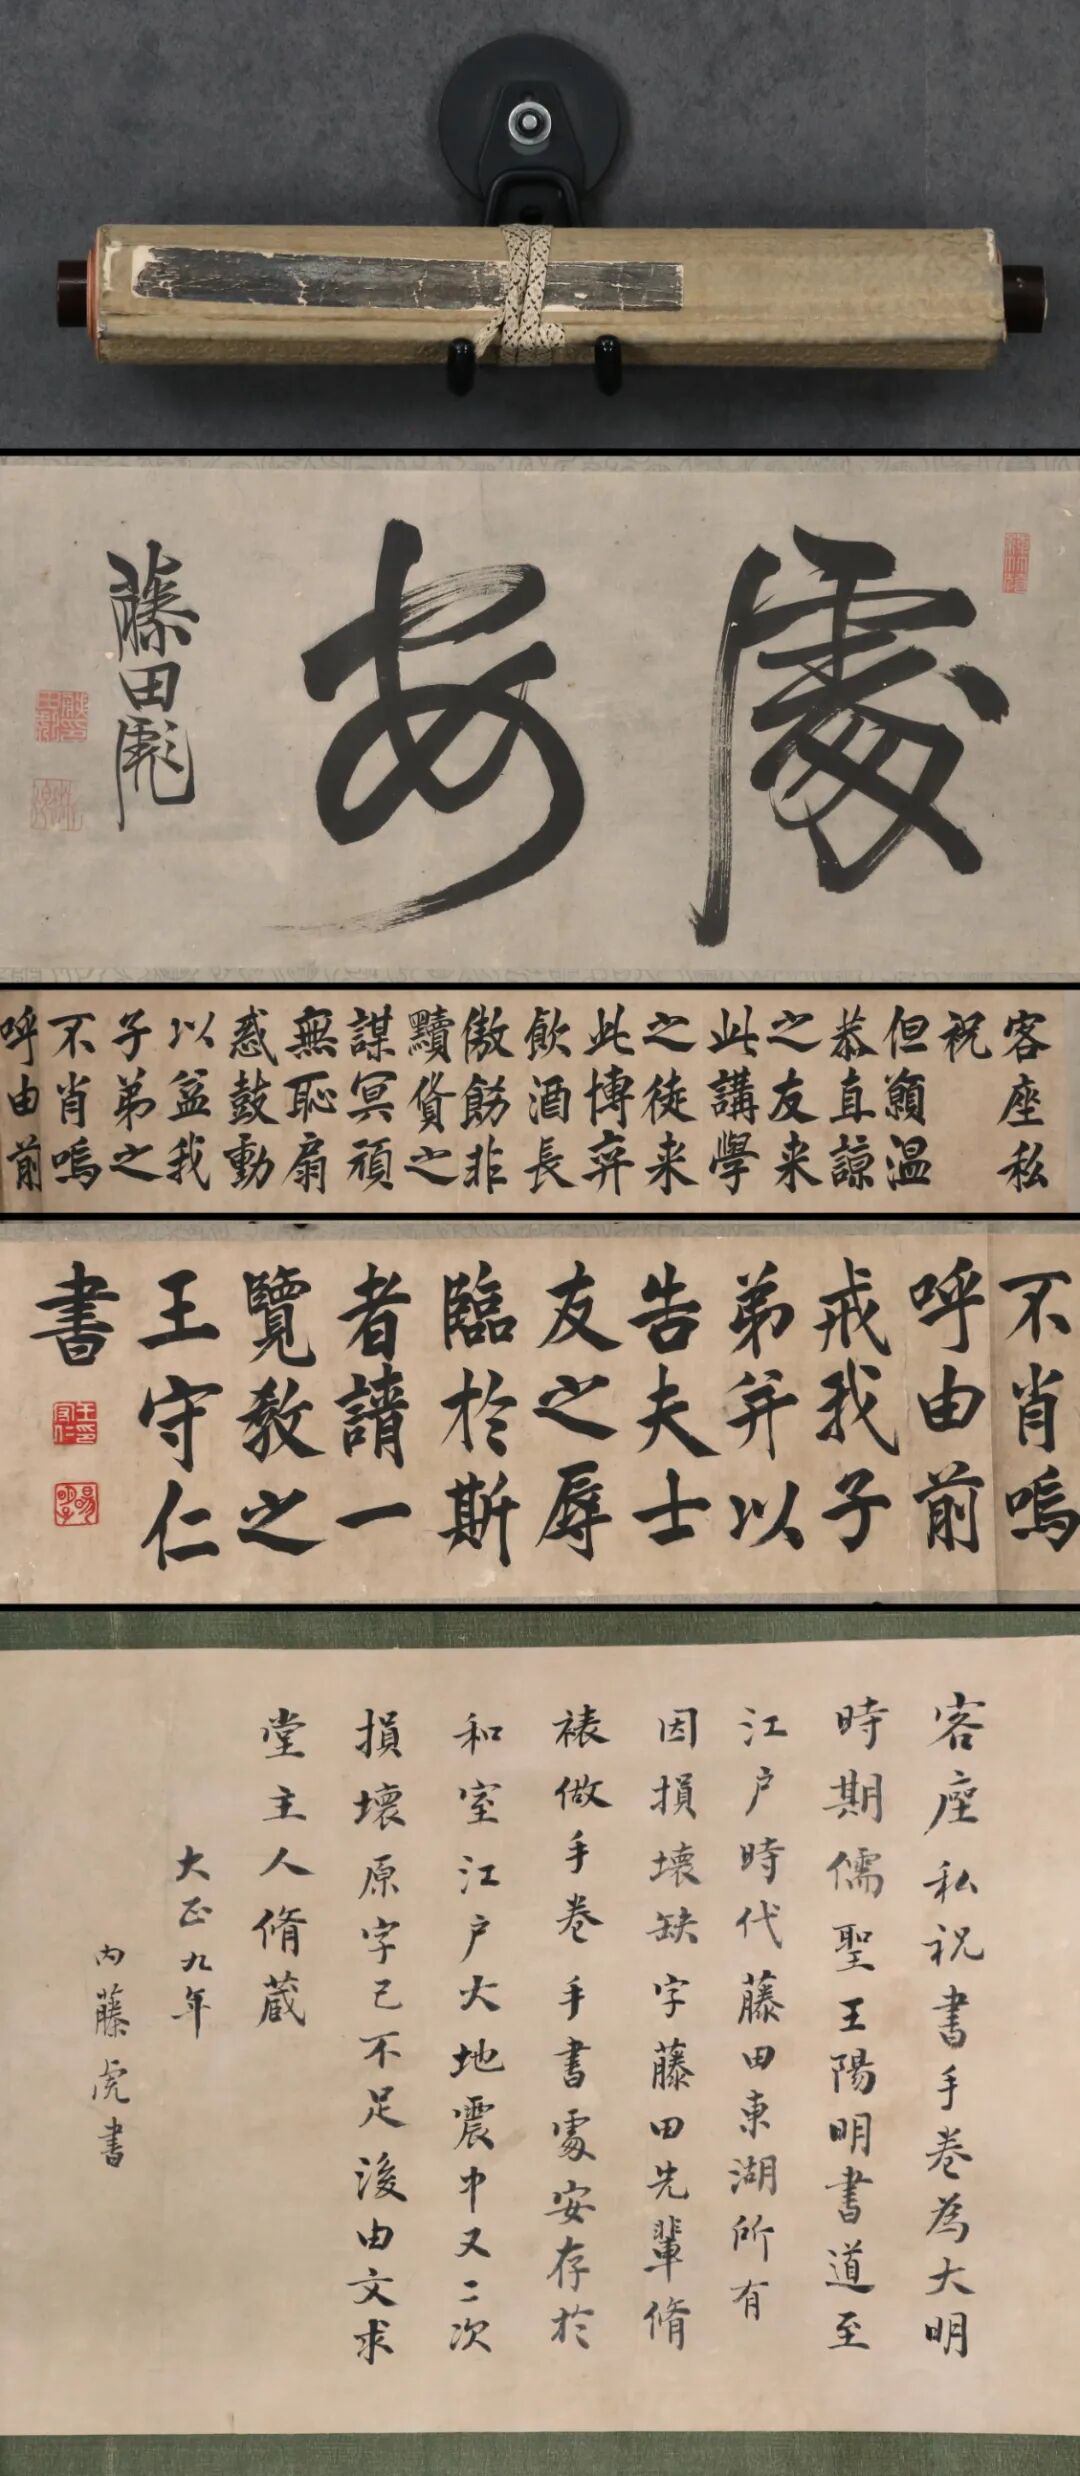 處安
藤田彪
客座私
祝
但願温
恭直諒
之友来
此講學
之徒来
此博弈
飲酒長
傲餝非
黷貨之
謀冥頑
無恥扇
惑鼓動
以益我
子弟之
不肖嗚
呼由前
不肖嗚
呼由前
戒我子
弟并以
告夫士
友之辱
臨於斯
者請一
覽教之
王守仁
書
客座私祝書手卷為大明
時期儒聖王陽明書道至
江户時代藤田東湖所有
因損壞缺字藤田先輩脩
裱做手卷手書處安存於
和室江户大地震中又二次
損壞原字已不足後由文求
堂主人脩蔵
大正九年
内藤虎書